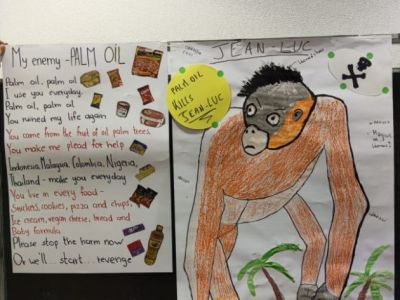 My enemy - PALM OIL
Palm oil, palm oil
I use you everyday.
Palm oil, palm oil
You ruined my life again
You come from the fruit of oil palm trees.
You make me plead for help
Indonesia, Malaysia, Colombia, Nigeria,
Thailand - make you everyday
You live in every food -
Snickers, cookies, pizza and chips,
Ice cream, vegan cheese, bread and
Baby formula
Please stop the harm now
Or we'll start... revenge
JEAN-LUC
PALM OIL
KILLS
JEAN-LUC